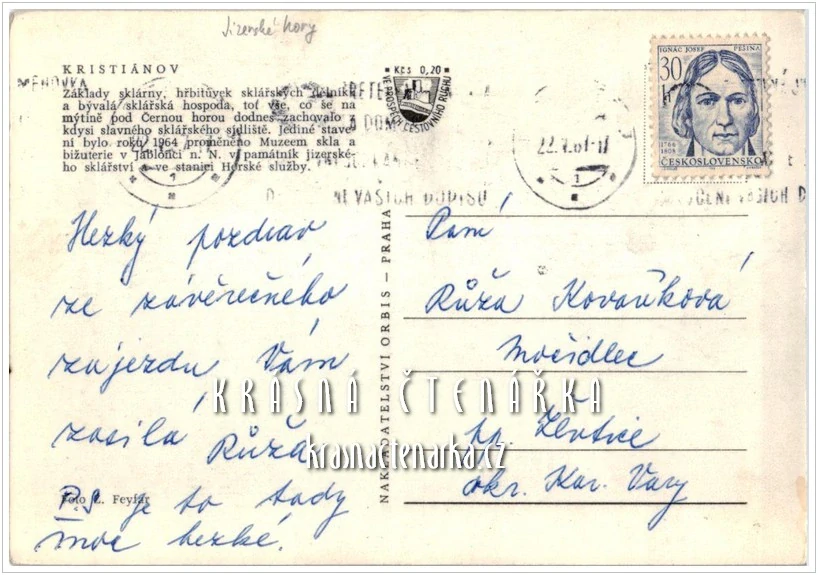 Jizerské hory
KRISTIÁNOV
Základy sklárny, hřbitůvek sklářských dělníků
a bývalá sklářská hospoda, toť vše, co se na
mýtině pod Černou horou dodnes zachovalo z
kdysi slavného sklářského sídliště. Jediné stave-
ní bylo roku 1964 proměněno Muzeem skla a
bižuterie v Jablonci n. N. v památník jizerské-
ho sklářství a ve stanici Horské služby.
Kčs 0,20
VE PROSPĚCH CESTOVNÍHO RUCHU
NÍ VAŠICH DOPISŮ
IGNÁC JOSEF PEŠINA
30
h
1766
1808
ČESKOSLOVENSKO
Hezký pozdrav
ze závěrečného
zajezdu Vám
zasílá Růža
P.S je to tady
moc hezké.
Foto L. Feyfar
NAKLADATELSTVÍ ORBIS – PRAHA
Paní
Růža Kovaříková
Močidlec
pp. Žlutice
okr. Kar. Vary
KRÁSNÁ ČTENÁŘKA
krasnactenarka.cz